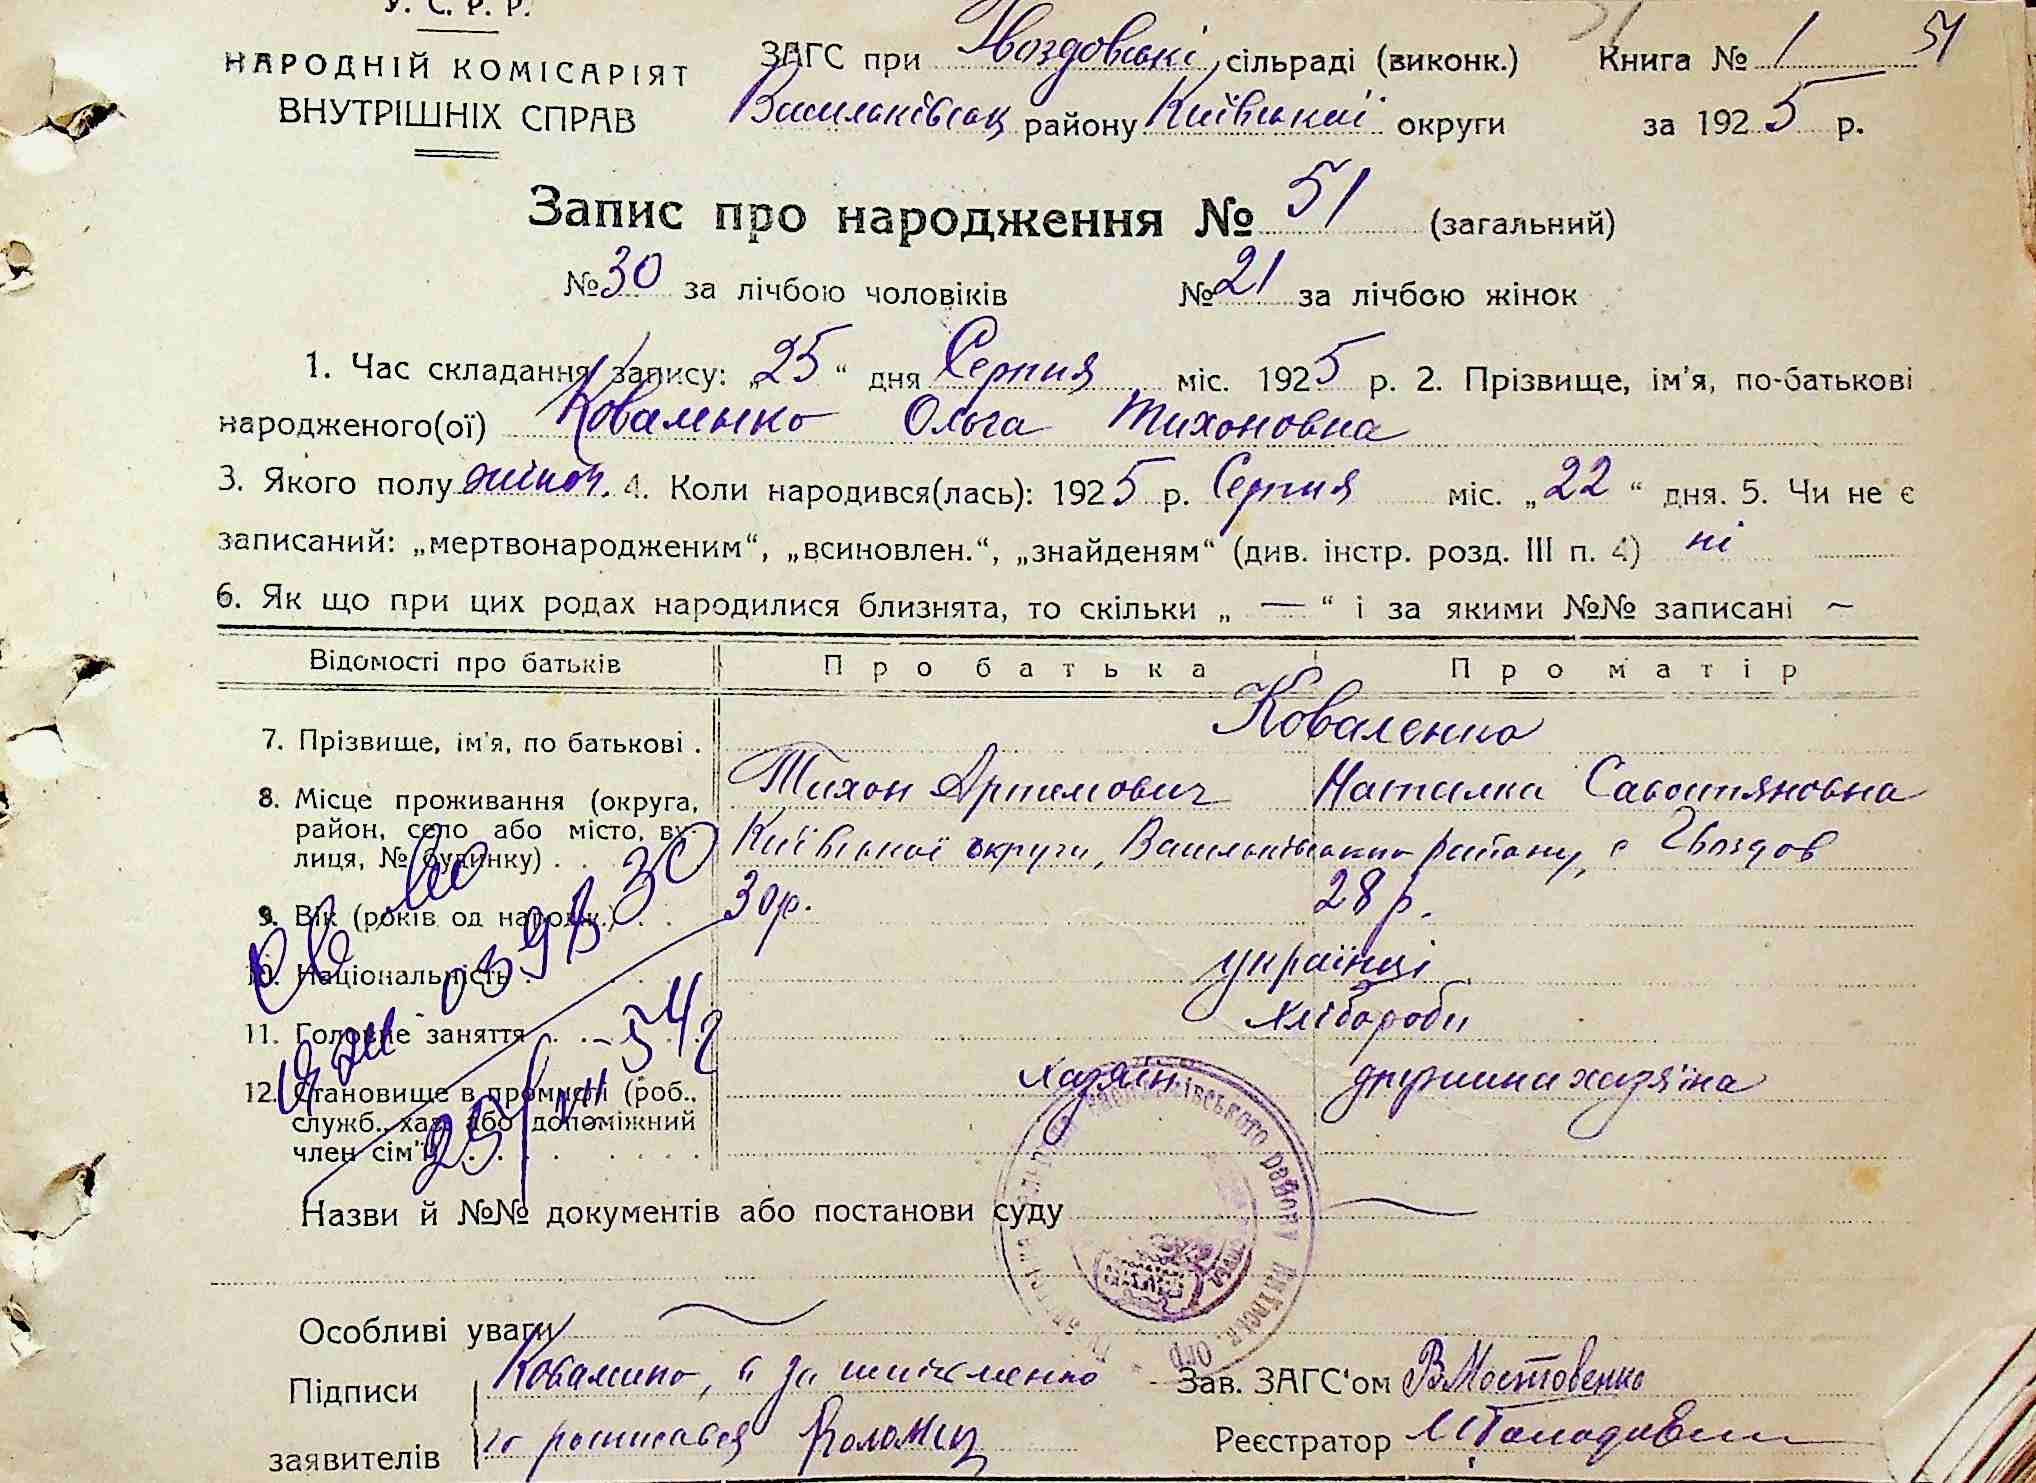 У. С. Р. Р.
НАРОДНІЙ КОМІСАРІЯТ
ВНУТРІШНІХ СПРАВ
ЗАГС при Гвоздовські сільраді (виконк.) Книга № 1 51
Васильківськ району Київської округи за 1925 р.
Запис про народження № 51 (загальний)
№ 30 за лічбою чоловіків № 21 за лічбою жінок
1. Час складання запису: „25“ дня Серпня міс. 1925 р. 2. Прізвище, ім'я, по-батькові
народженого(ої) Коваленко Ольга Тихоновна
3. Якого полу жіноч. 4. Коли народився(лась): 1925 р. Серпня міс. „22“ дня. 5. Чи не є
записаний: „мертвонародженим“, „всиновлен.“, „знайденям“ (див. інстр. розд. III п. 4) ні
6. Як що при цих родах народилися близнята, то скільки „ — “ і за якими №№ записані ~
Відомості про батьків Про батька Про матір
Коваленко
7. Прізвище, ім'я, по батькові .
Тихон Артемович Наталка Савостяновна
8. Місце проживання (округа,
район, село або місто, ву-
лиця, № будинку) . . Київської округи, Васильківського району, с Гвоздов
9. Вік (років од народж.) . . 30 р. 28 р.
10. Національність . українці
11. Головне заняття . . хлібороби
12. Становище в промислі (роб., хазяїн дружина хазяїна
служб., хаз. або допоміжний
член сім'ї) . . . .
Назви й №№ документів або постанови суду
Особливі уваги
Підписи Коваленко, а за
заявителів го росписався Коломієц
Зав. ЗАГС'ом В Мостовенко
Реєстратор